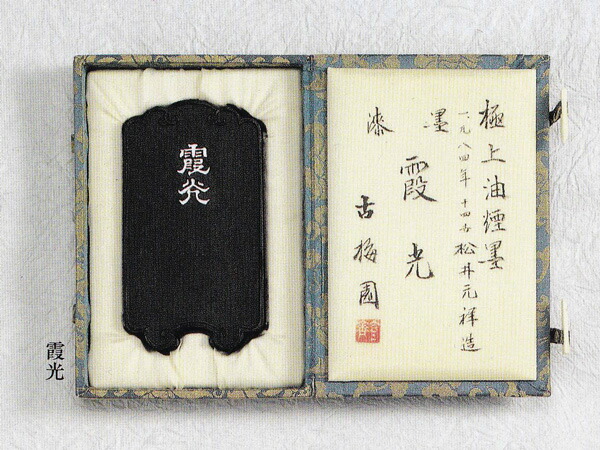 極上油煙墨
一九八四年 十四世松井元祥造
漆墨
霞光
古梅園
霞光
霞光